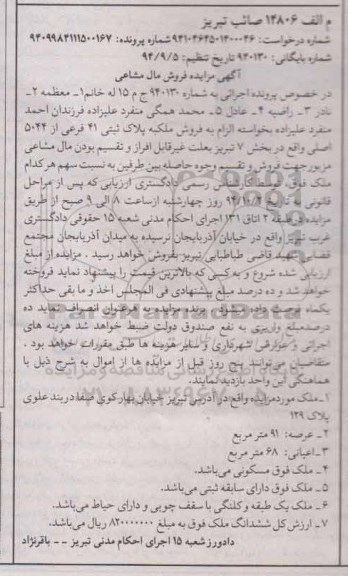 م الف ۱۴۸۰۶ صائب تبریز
شماره درخواست: ۹۴۱۰۴۶۴۵۰۱۴۰۰۰۴۶ شماره پرونده: ۹۴۰۹۹۸۴۱۱۱۵۰۰۱۶۷
شماره بایگانی: ۹۴۰۱۳۰ تاریخ تنظیم: ۹۴/۹/۵
آگهی مزایده فروش مال مشاعی
در خصوص پرونده اجرائی به شماره ۹۴۰۱۳۰ ج م ۱۵ له خانم ۱- معظمه ۲-
نادر ۳- راضیه ۴- عادل ۵- محمد همگی منفرد علیزاده فرزندان احمد
منفرد علیزاده بخواسته الزام به فروش ملکیه پلاک ثبتی ۴۱ فرعی از ۵۰۴۴
اصلی واقع در بخش ۷ تبریز بعلت غیرقابل افراز و تقویم بودن مال مشاعی
مزبور جهت فروش و تقسیم وجوه حاصله بین طرفین به نسبت سهم هر کدام
ملک فوق توسط کارشناس رسمی دادگستری ارزیابی که پس از مراحل
قانونی به تاریخ ۹۴/۱۰/۲ روز چهارشنبه از ساعت ۸ الی ۹ صبح از طریق
مزایده در طبقه ۲ اتاق ۱۳۱ اجرای احکام مدنی شعبه ۱۵ حقوقی دادگستری
غرب تبریز واقع در خیابان آذربایجان نرسیده به میدان آذربایجان مجتمع
قضایی شهید قاضی طباطبایی تبریز بفروش خواهد رسید . مزایده از مبلغ
ارزیابی شده شروع و به کسی که بالاترین قیمت را پیشنهاد نماید فروخته
خواهد شد و ده درصد مبلغ پیشنهادی فی المجلس اخذ و ما بقی حداکثر
یکماه مهلت داده میشود . برنده مزایده به هر عنوان انصراف نماید ده
درصد مبلغ واریزی به نفع صندوق دولت ضبط خواهد شد هزینه های
اجرائی و عوارض شهرداری و سایر هزینه ها طبق مقررات خواهد بود .
متقاضیان می‌توانند پنج روز قبل از مزایده ها از اموال به شرح ذیل با
هماهنگی این واحد بازدید نمایند.
۱- ملک مورد مزایده واقع در آدرس تبریز خیابان بهار کوی صفا دربند علوی
پلاک ۱۲۹
۲- عرصه: ۹۱ متر مربع
۳- اعیانی: ۶۸ متر مربع
۴- ملک فوق مسکونی می‌باشد.
۵- ملک فوق دارای سابقه ثبتی می‌باشد.
۶- ملک یک طبقه و کلنگی با سقف چوبی و دارای حیاط می‌باشد.
۷- ارزش کل ششدانگ ملک فوق به مبلغ ۸۲۰۰۰۰۰۰۰ ریال می‌باشد.
دادورز شعبه ۱۵ اجرای احکام مدنی تبریز -- باقرنژاد